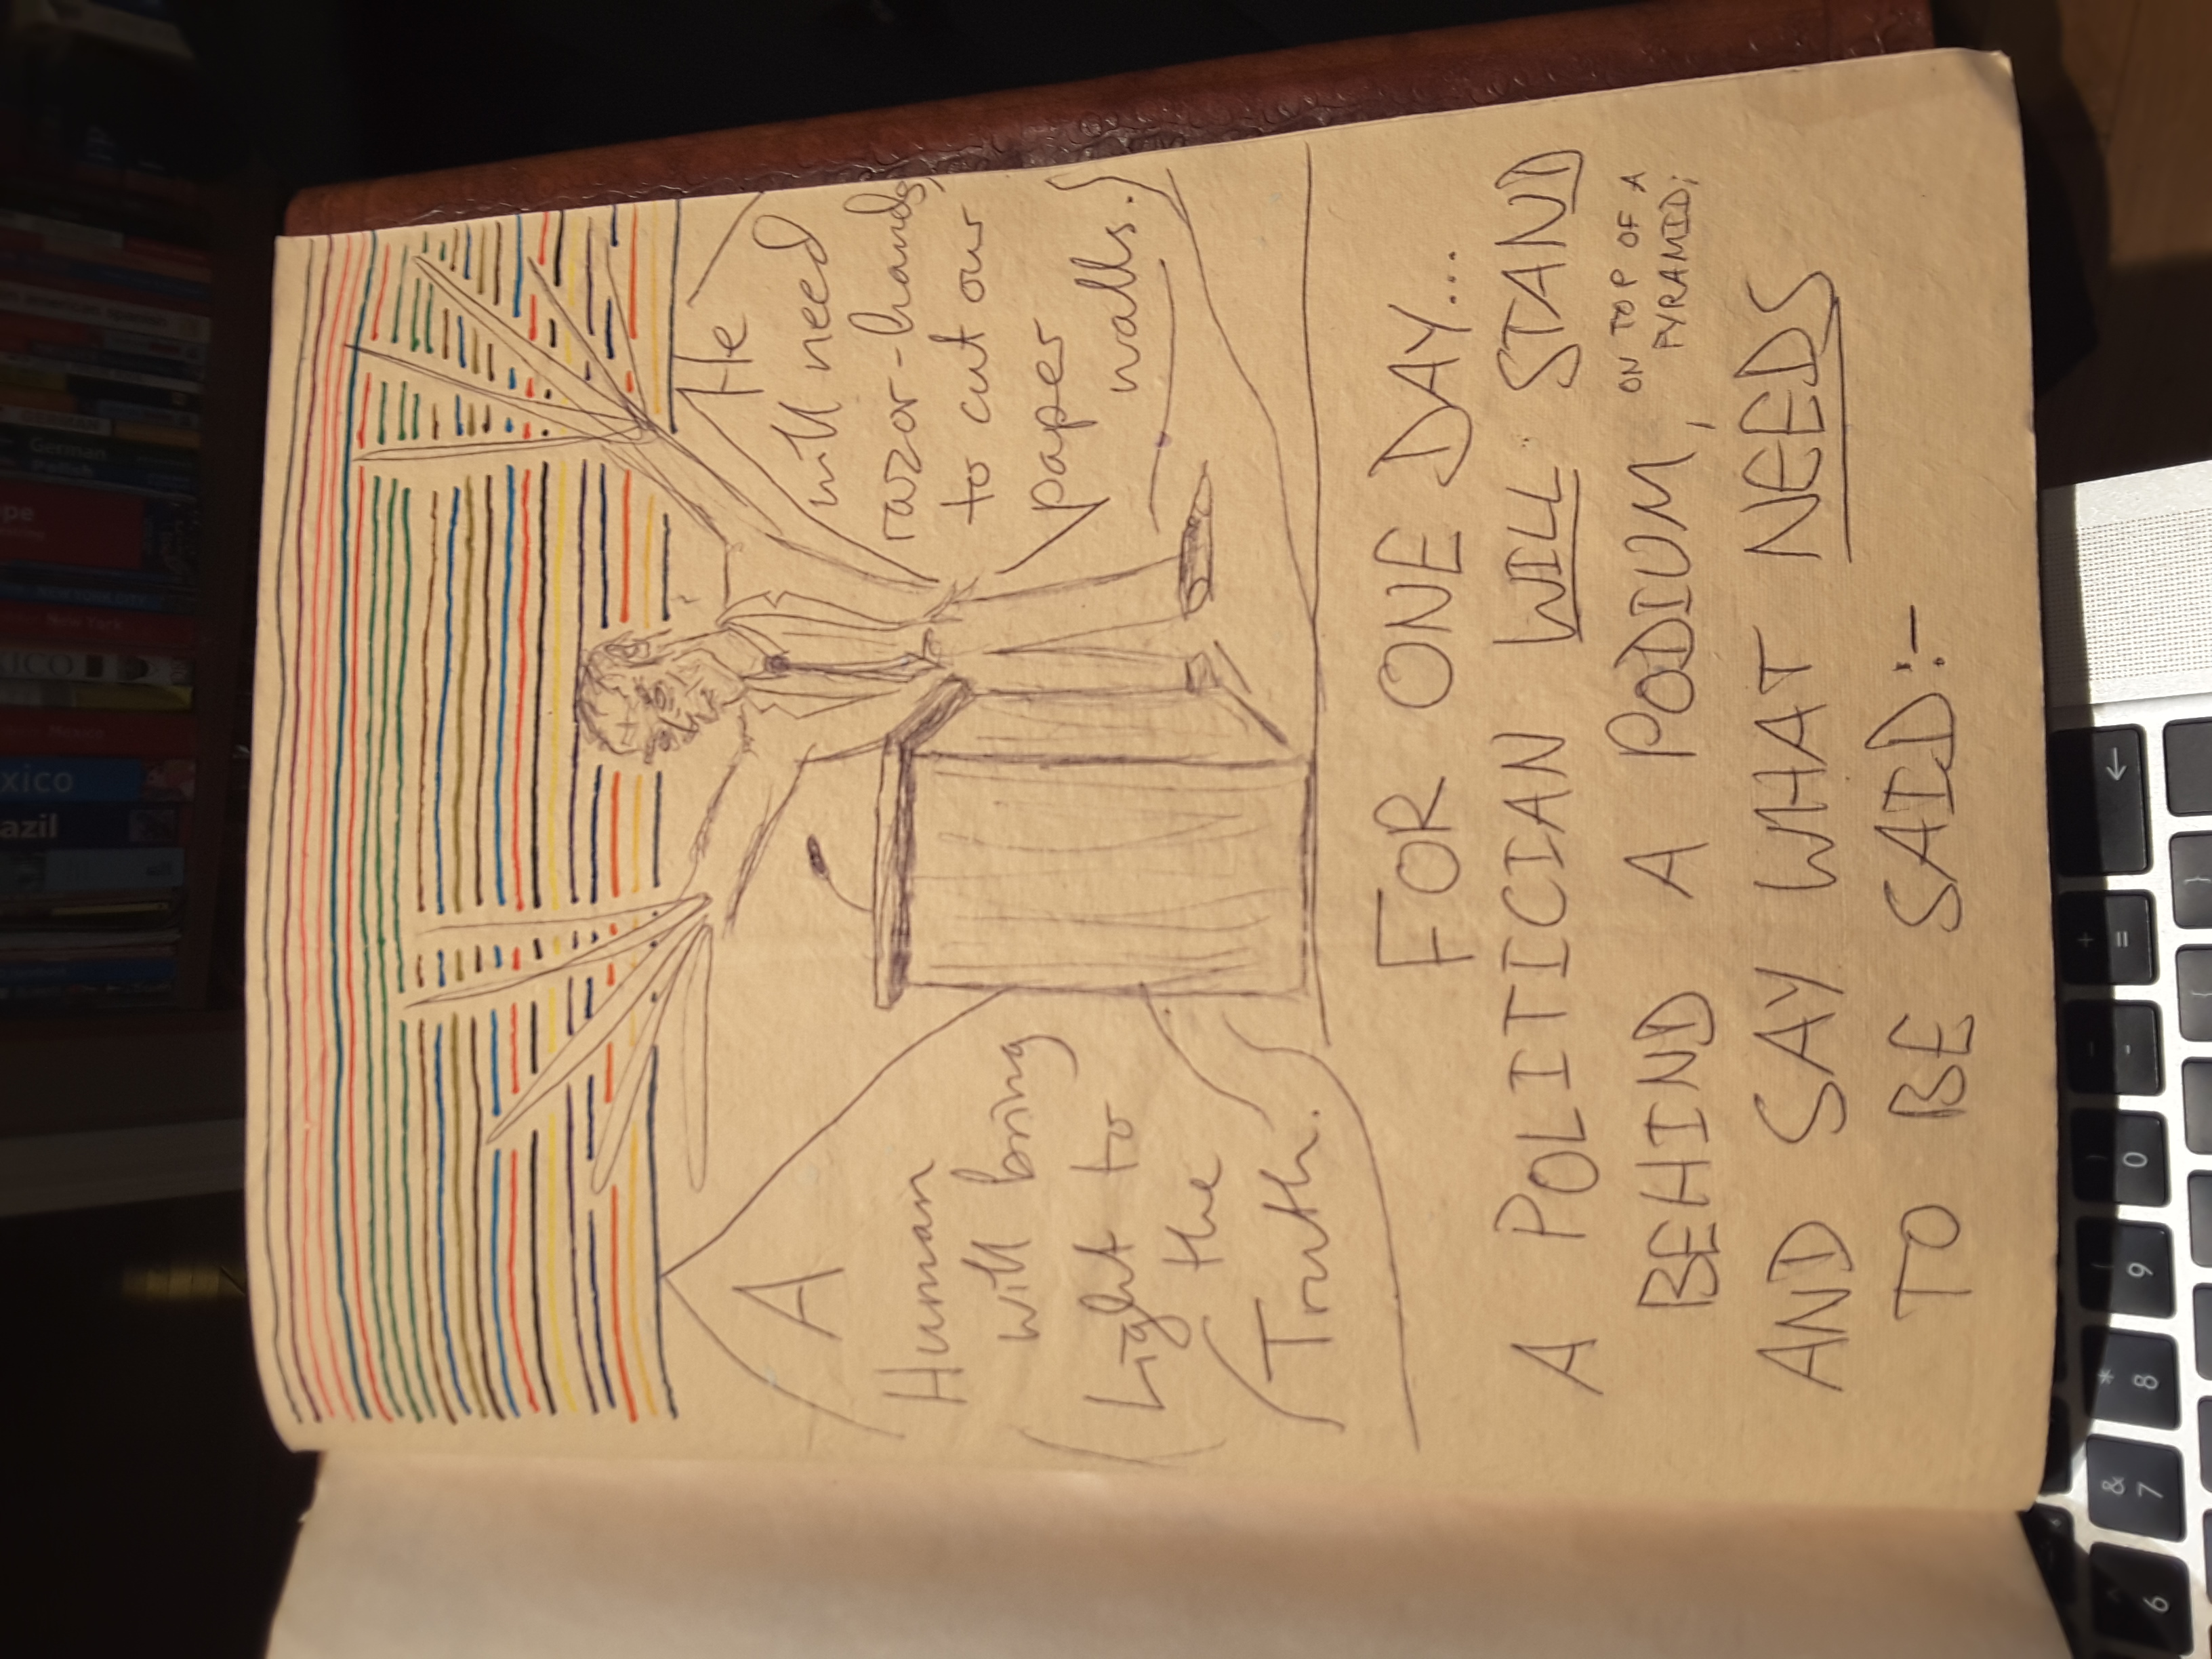 A
Human
will bring
Light to
the
Truth.
He
will need
razor-hands,
to cut our
paper
walls.
FOR ONE DAY...
A POLITICIAN WILL STAND
BEHIND A PODIUM, ON TOP OF A
PYRAMID;
AND SAY WHAT NEEDS
TO BE SAID:-
azil
xico
German
&
7
*
8
6
(
9
)
0
-
+
=
←
{
}